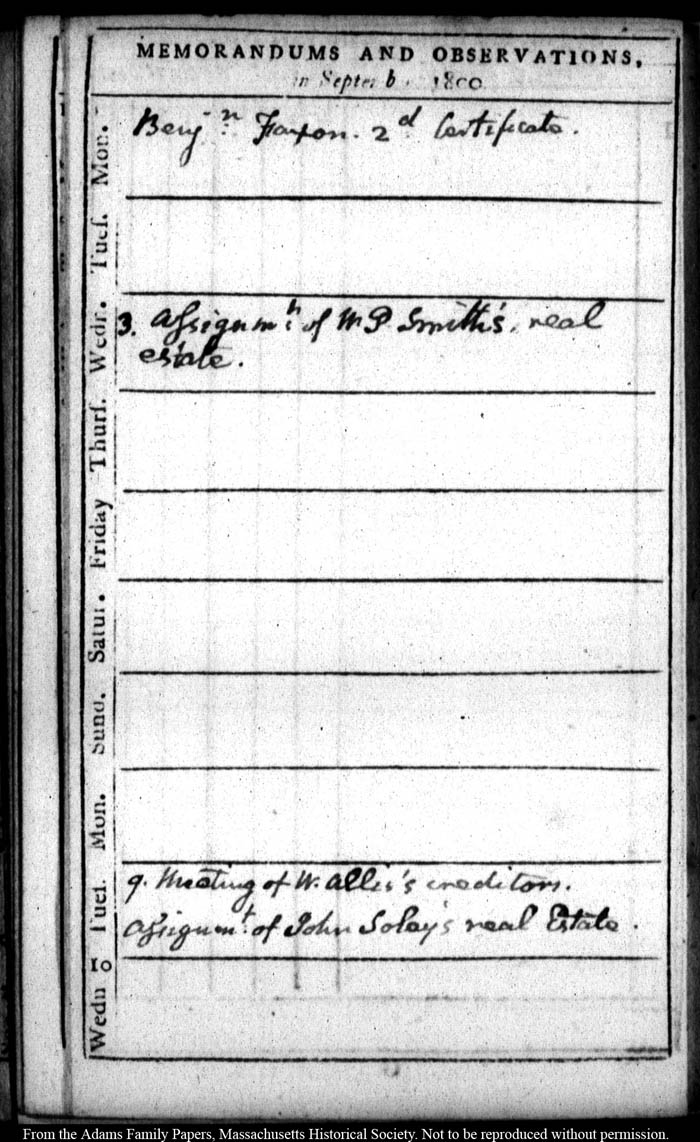 MEMORANDUMS AND OBSERVATIONS,
in Septemb. 1800
Mon. Benjn. Faxon. 2d Certificate.
Tues.
Wedn. 3. Assignmt. of W P. Smith's, real
estate.
Thurs.
Friday
Satur.
Sund.
Mon.
Tues. 9. Meeting of W. Allis's creditors.
Assignmt. of John Soley's real Estate.
Wedn 10
From the Adams Family Papers, Massachusetts Historical Society. Not to be reproduced without permission.